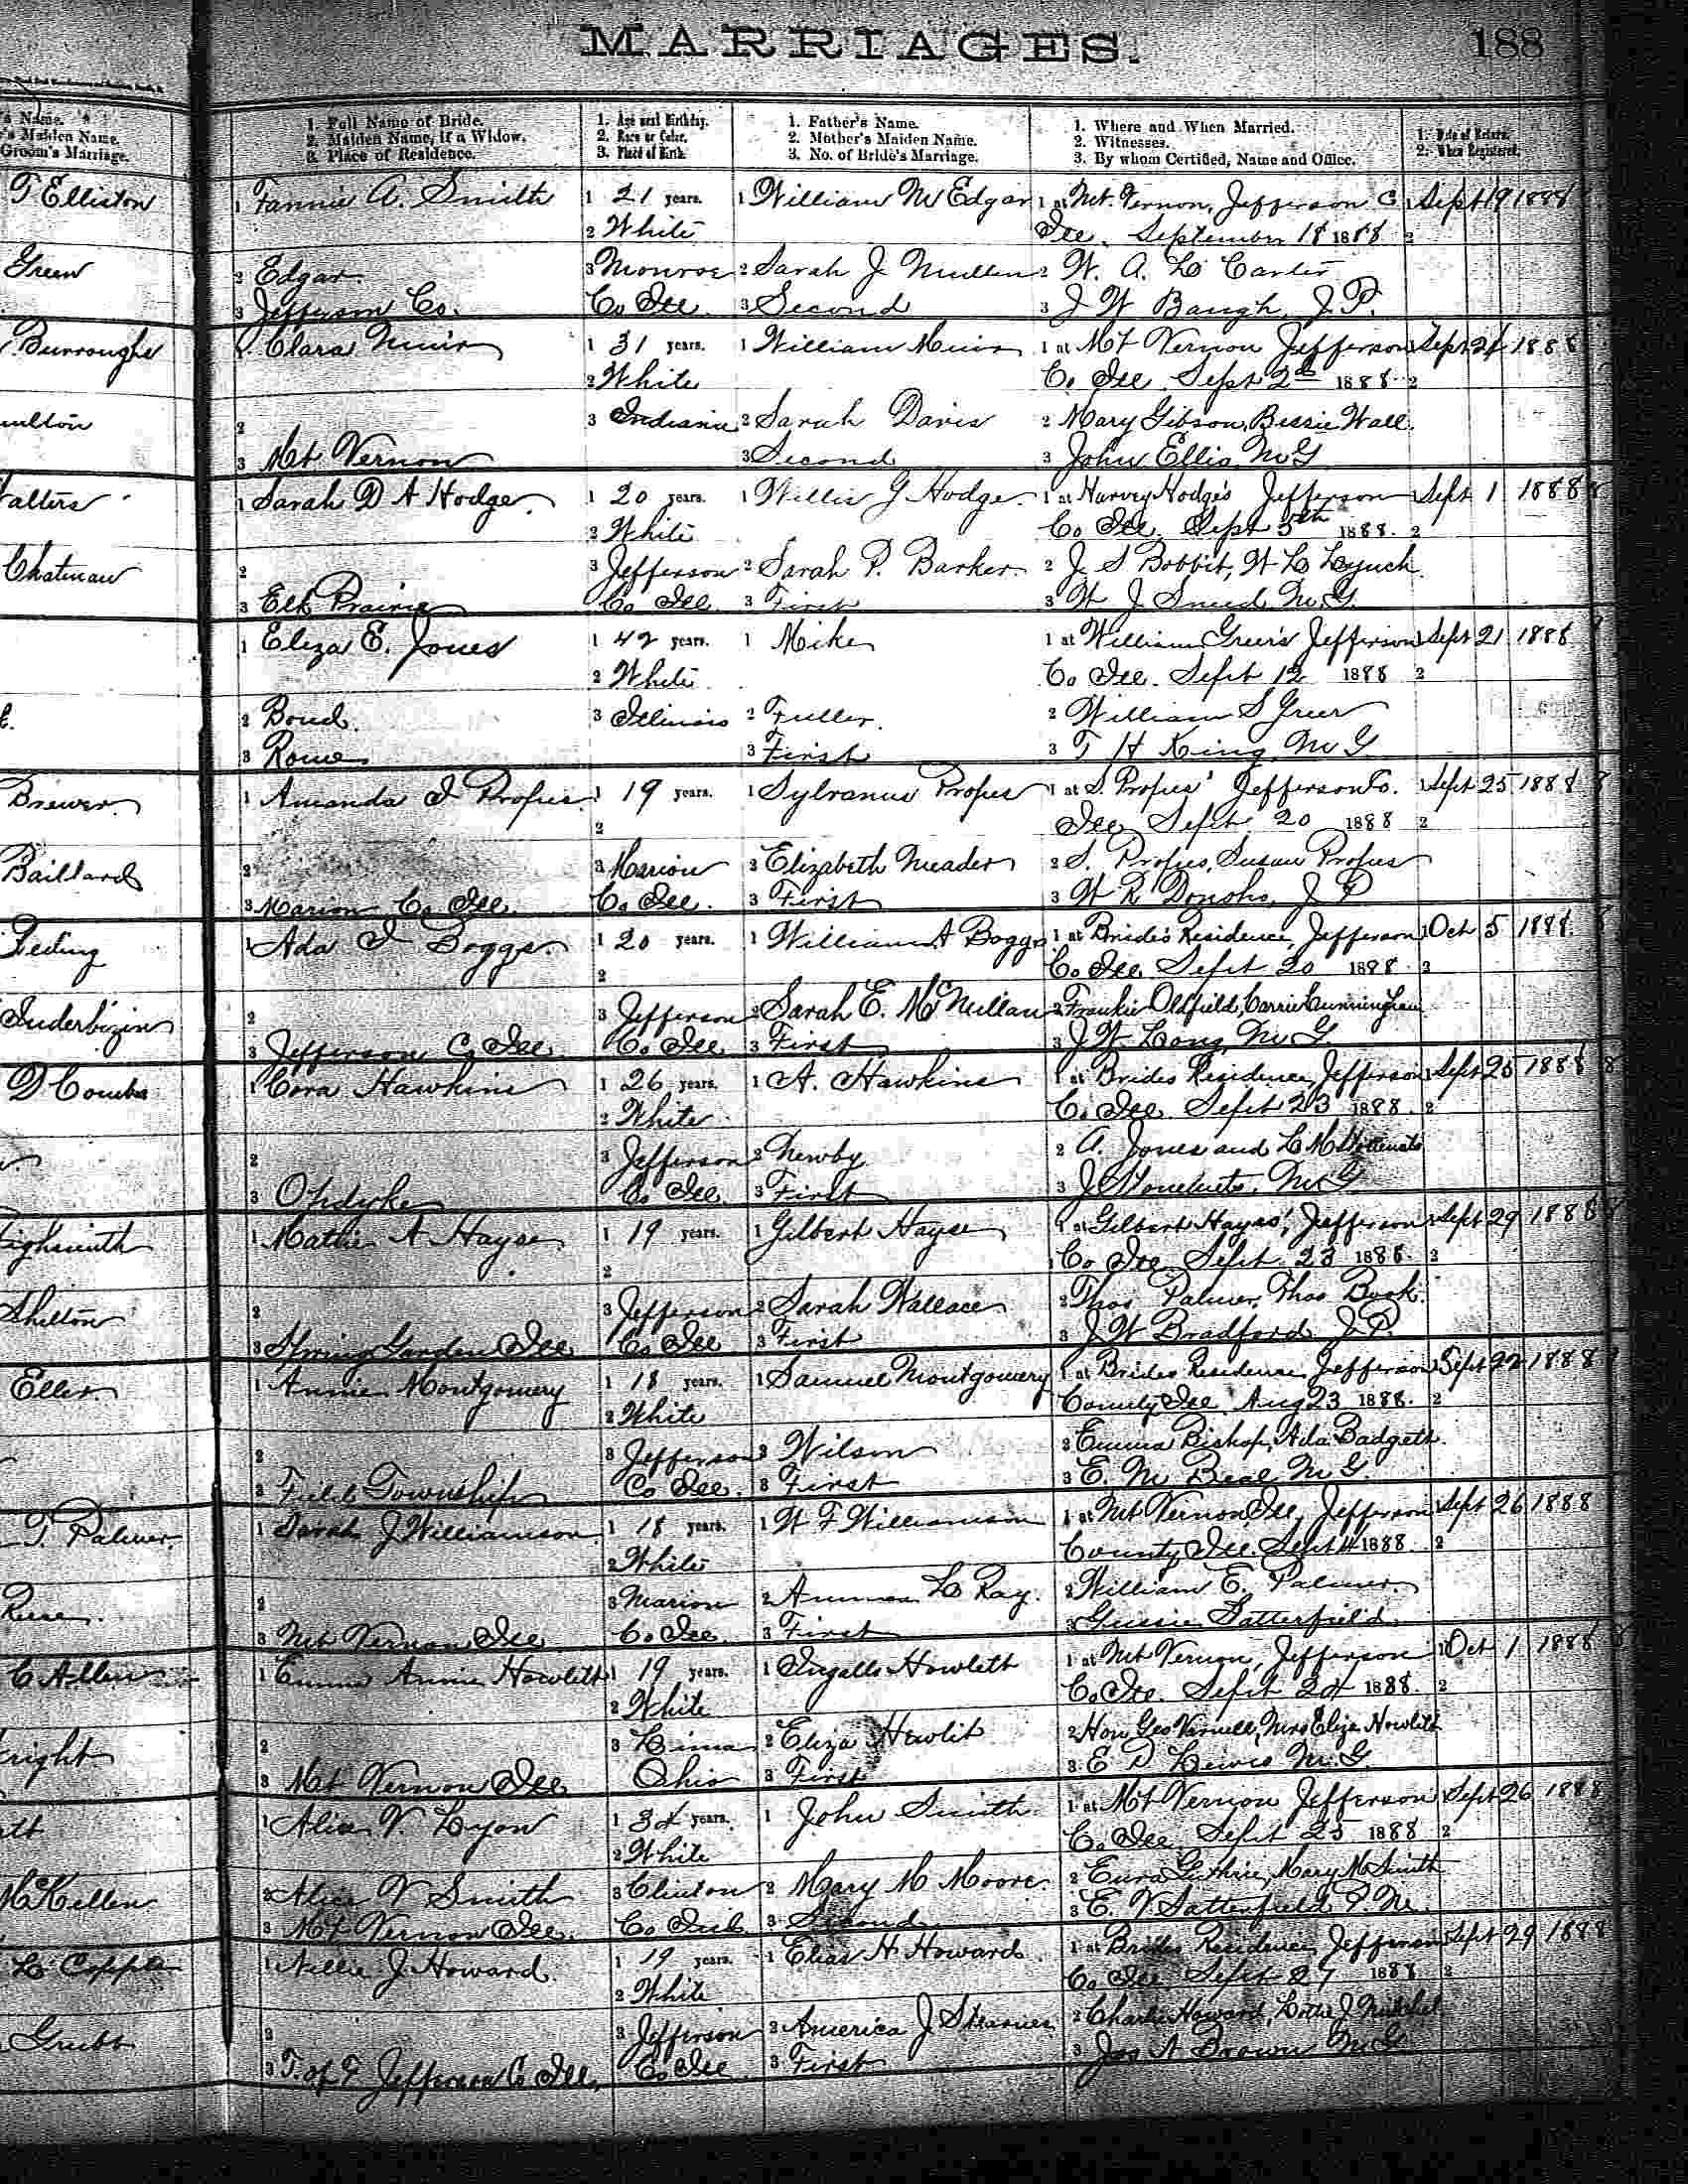 MARRIAGES.
188
's Name.
's Maiden Name.
Groom's Marriage.
1. Full Name of Bride.
2. Maiden Name, if a Widow.
3. Place of Residence.
1. Age next Birthday.
2. Race or Color.
3. Place of Birth.
1. Father's Name.
2. Mother's Maiden Name.
3. No. of Bride's Marriage.
1. Where and When Married.
2. Witnesses.
3. By whom Certified, Name and Office.
1. Date of Return.
2. When Registered.
T Elliston 1 Fannie A. Smith 1 21 years. 1 William M Edgar 1 at Mt. Vernon, Jefferson C 1 Sept 19 1888
2 White Ill. September 18 1888 2
Green 2 Edgar 3 Monroe 2 Sarah J Mullen 2 W. A. L Carter
3 Jefferson Co. Co Ill. 3 Second 3 J W Baugh J. P.
Burroughs 1 Clara Muir 1 31 years. 1 William Muir 1 at Mt Vernon Jefferson 1 Sept 24 1888
2 White Co. Ill. Sept 2d 1888 2
2 3 Indiana 2 Sarah Davis 2 Mary Gibson, Bessie Wall.
3 Mt Vernon 3 Second 3 John Ellis M G
alters 1 Sarah D A Hodge 1 20 years. 1 Willis G Hodge 1 at Harvey Hodge's Jefferson 1 Sept 1 1888
2 White Co Ill. Sept 5th 1888. 2
Chatman 2 3 Jefferson 2 Sarah P. Barker. 2 J. S Bobbit, W L Lynch.
3 Elk Prairie Co Ill. 3 First 3 W J Sneed M.G.
1 Eliza E. Jones 1 42 years. 1 Mike 1 at William Greer's Jefferson 1 Sept 21 1888
2 White Co Ill. Sept 12 1888 2
2 Bond. 3 Illinois 2 Fuller. 2 William S Greer
3 Rome 3 First 3 T H King M G
Brewer 1 Amanda I Profus 1 19 years. 1 Sylvanus Profus 1 at S. Profus' Jefferson Co. 1 Sept 25 1888
2 Ill Sept 20 1888 2
Baillard 2 3 Marion 2 Elizabeth Meader 2 S. Profus, Susan Profus
3 Marion Co Ill. Co Ill. 3 First 3 W R Donoho, J P
1 Ada I Boggs. 1 20 years. 1 William A Boggs 1 at Bride's Residence, Jefferson 1 Oct 5 1888.
2 Co Ill Sept 20 1888. 2
Inderbizin 2 3 Jefferson 2 Sarah E. McMillan 2 Frankie Oldfield, Carrie Cunningham
3 Jefferson Co Ill. Co Ill 3 First 3 J W Long, M G.
D Combs 1 Cora Hawkins 1 26 years. 1 A. Hawkins 1 at Brides Residence, Jefferson 1 Sept 25 1888
2 White Co Ill. Sept 23 1888. 2
2 3 Jefferson 2 Newby 2 A. Jones and L M
3 Opdyke Co Ill. 3 First 3 M G
ighsmith 1 Mattie A Hayse 1 19 years. 1 Gilbert Hayse 1 at Gilbert Hayse', Jefferson 1 Sept 29 1888
2 Co Ill Sept 23 1888. 2
Shilton 2 3 Jefferson 2 Sarah Wallace 2 Thos Palmer, Thos Book.
3 Spring Garden Ill. Co Ill 3 First 3 J W Bradford J. P.
Ellis 1 Annie Montgomery 1 18 years. 1 Samuel Montgomery 1 at Brides Residence Jefferson 1 Sept 22 1888
2 White County Ill Aug 23 1888. 2
2 3 Jefferson 2 Wilson 2 Emma Bishop, Ada Badgett.
3 Field Township Co Ill. 3 First 3 E. M Beal M G.
T. Palmer. 1 Sarah J Williamson 1 18 years. 1 W F Williamson 1 at Mt Vernon Ill, Jefferson 1 Sept 26 1888
2 White County, Ill. Sept 4 1888. 2
2 3 Marion 2 L Ray. 2 William E. Palmer.
3 Mt Vernon Ill Co. Ill. 3 First 3 Gussie Satterfield.
C Allen 1 Emma Annie Howlett 1 19 years. 1 Ingalls Howlett 1 at Mt Vernon, Jefferson 1 Oct 1 1888
2 White Co. Ill. Sept 24 1888. 2
right 2 3 Lima 2 Eliza Howlit 2 Hon Geo Varnell, Mrs Eliza Howlitt
3 Mt Vernon Ill Ohio 3 First 3 E D Lewis M. G.
1 Alice V. Lyon 1 34 years. 1 John Smith 1 at Mt Vernon Jefferson 1 Sept 26 1888
2 White Co. Ill Sept 25 1888 2
McKellen 2 Alice V Smith 3 Clinton 2 Mary M Moore. 2 Eura Guthrie, Mary M Smith
3 Mt Vernon Ill. Co Ind. 3 Second 3 E. V. Satterfield P. M.
L Copple 1 Nellie J Howard. 1 19 years. 1 Elias H Howard 1 at Brides Residence Jefferson 1 Sept 29 1888
2 White Co Ill Sept 27 1888 2
Grubb 2 3 Jefferson 2 America J Starnes 2 Charlie Howard, Lottie J
3 T. of F Jefferson Co Ill. Co Ill 3 First 3 Jas A Brown M G